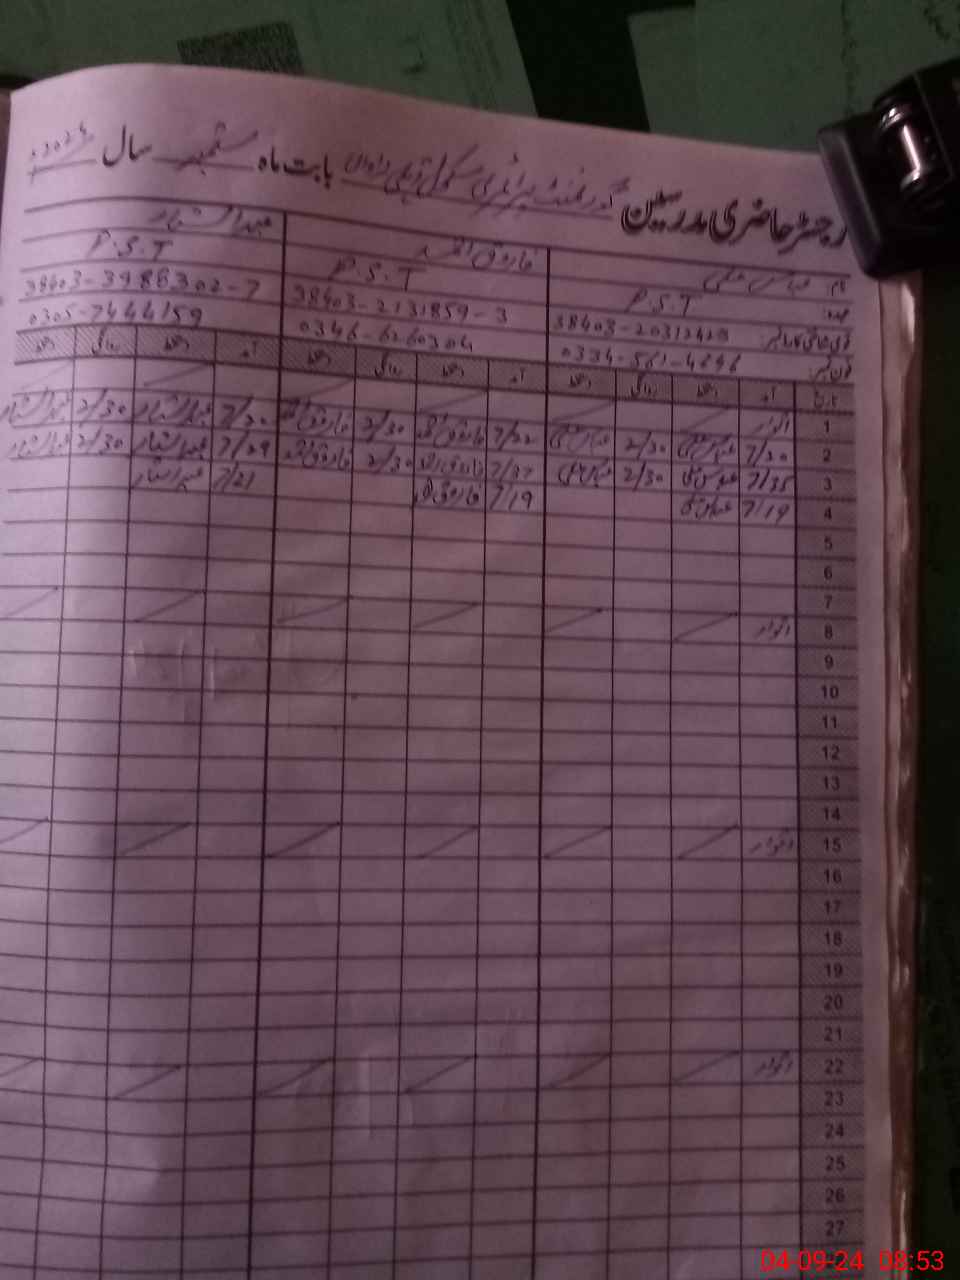 رجسٹر حاضری مدرسین گورنمنٹ پرائمری سکول بابت ماہ ستمبر سال 2024ء
نام: عباس علی فاروق احمد عبدالستار
عہدہ: P.S.T P.S.T P.S.T
قومی شناختی کارڈ نمبر: 38403-2131859-3 38403-3986302-7
فون نمبر: 0334-561-4646 0346-6260304 0305-7444159
تاریخ آمد دستخط روانگی دستخط آمد دستخط روانگی دستخط آمد دستخط روانگی دستخط
1 اتوار
2 7/20 عباس علی 2/30 عباس علی 7/22 فاروق احمد 2/30 فاروق احمد 7/20 عبدالستار 2/30 عبدالستار
3 7/35 عباس علی 2/30 عباس علی 7/37 فاروق احمد 2/30 فاروق احمد 7/29 عبدالستار 2/30 عبدالستار
4 7/19 عباس علی 7/19 فاروق احمد 7/21 عبدالستار
5
6
7
8 اتوار
9
10
11
12
13
14
15 اتوار
16
17
18
19
20
21
22 اتوار
23
24
25
26
27
04-09-24 08:53